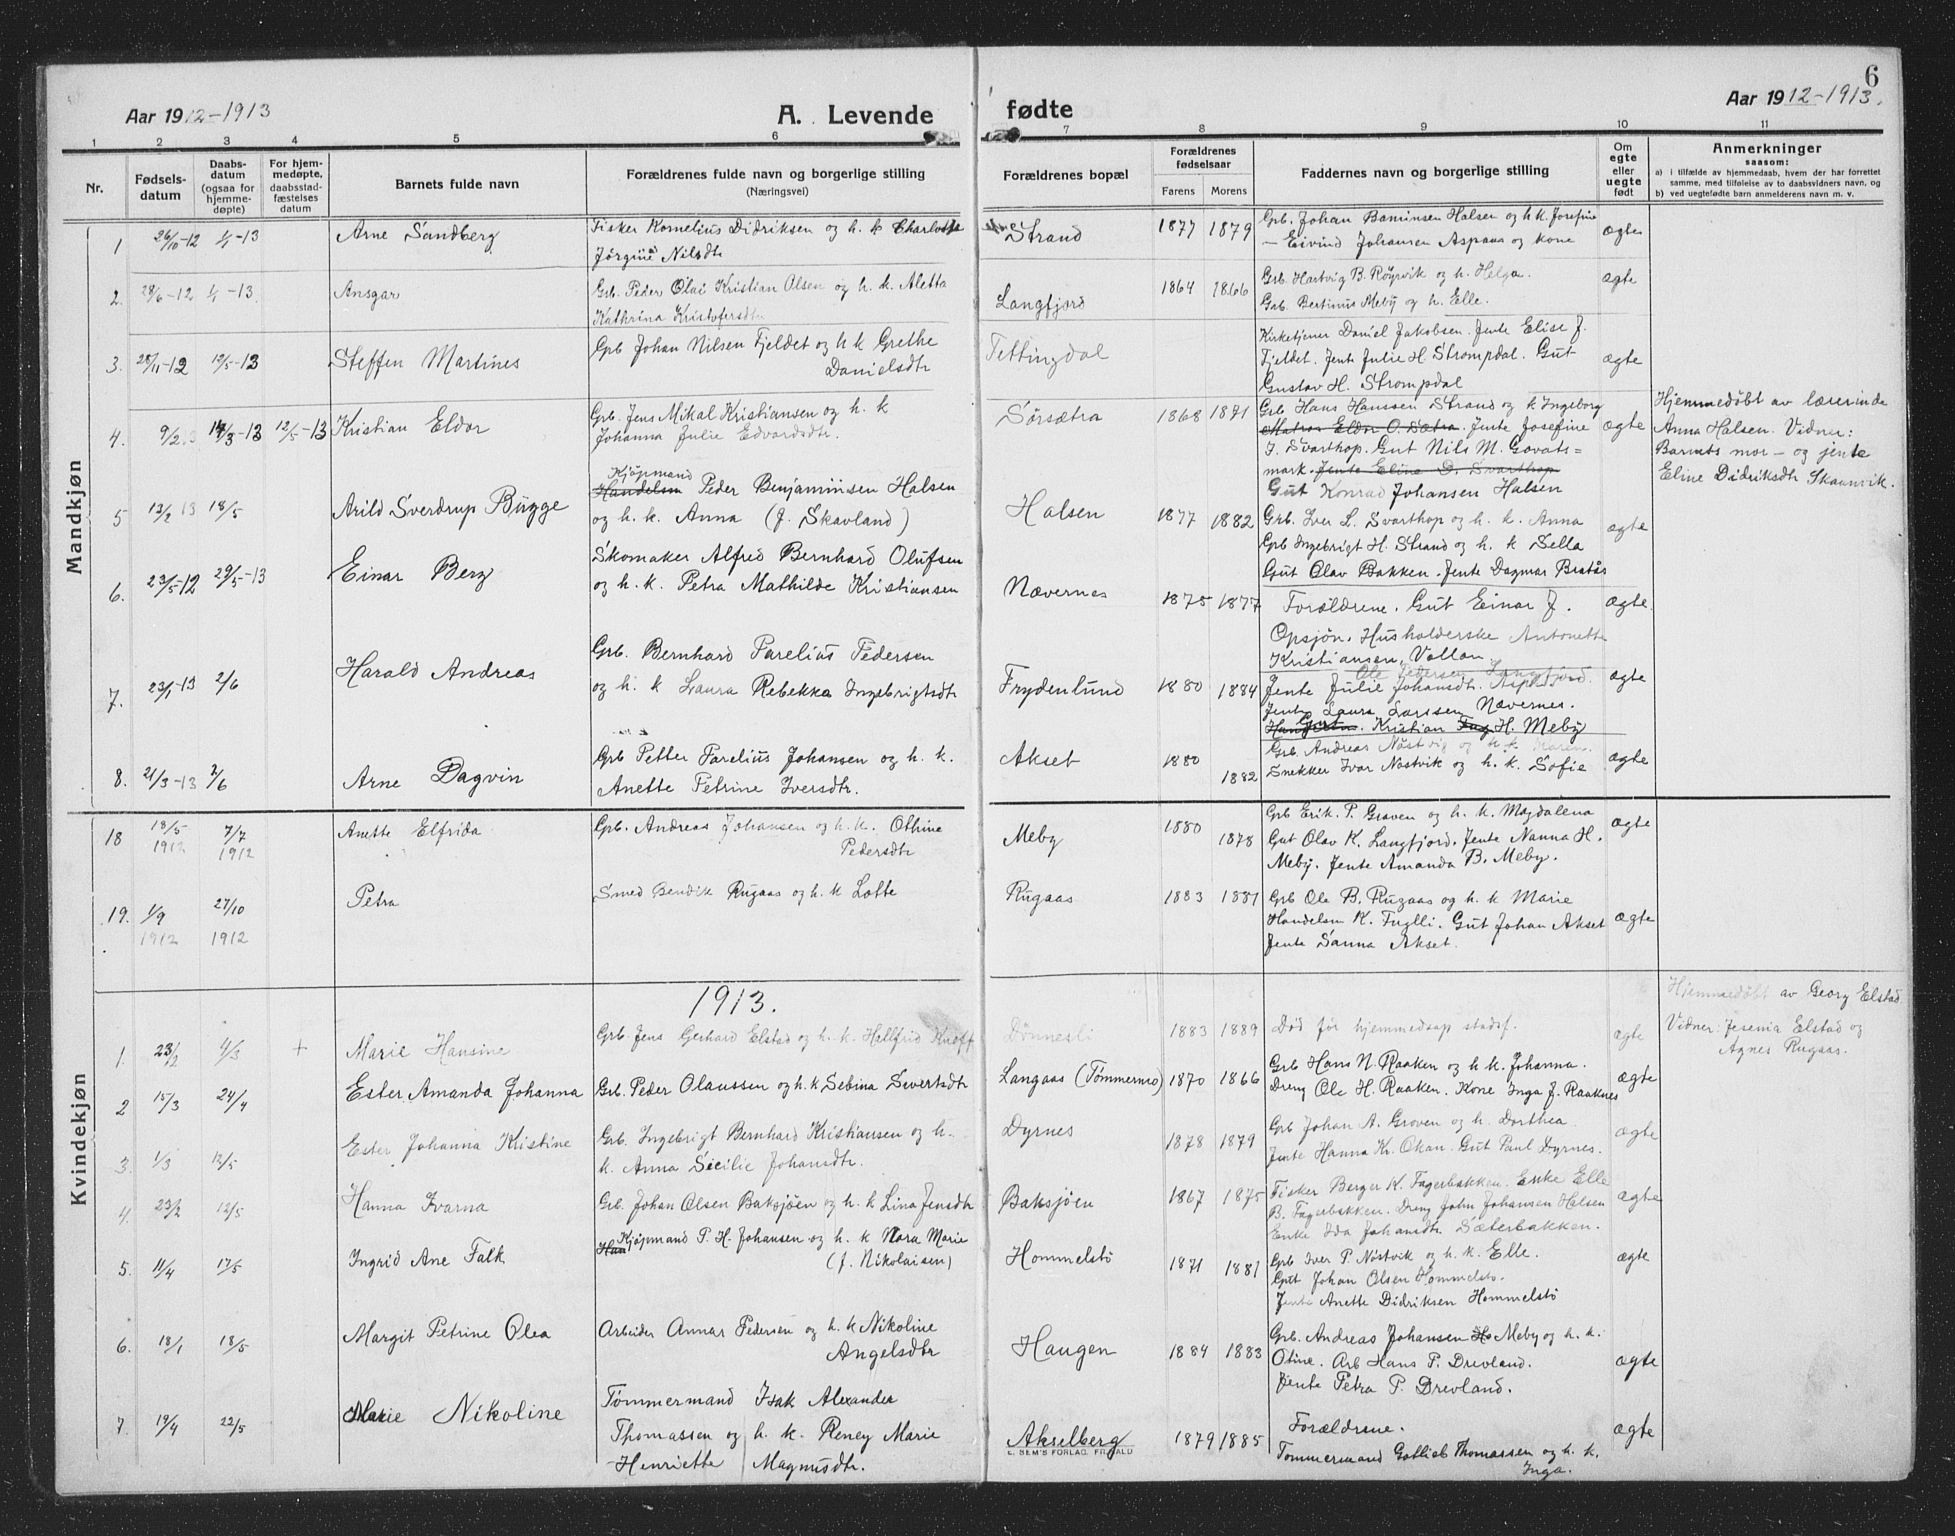 6
Aar 1912-1913
A. Levende fødte
Aar 1912-1913.
1 2 3 4 5 6 7 8 9 10 11
Nr.
Fødsels-
datum
Daabs-
datum
(ogsaa for
hjemme-
døpte)
For hjem-
medøpte,
daabsstad-
fæstelses
datum
Barnets fulde navn
Forældrenes fulde navn og borgerlige stilling
(Næringsvei)
Forældrenes bopæl
Forældrenes
fødselsaar
Farens Morens
Faddernes navn og borgerlige stilling
Om
egte
eller
uegte
født
Anmerkninger
saasom:
a) i tilfælde av hjemmedaab, hvem der har forrettet
samme, med tilføielse av to daabsvidners navn, og
b) ved uegtefødte barn anmelderens navn m. v.
Mandkjøn
1 26/10-12 1/1-13 Arne Sandberg
Fisker Kornelius Didriksen og h. k Charlotte
Jørgine Nilsdtr
Strand 1877 1879
Grb. Johan Benninsen Halsen og h.k. Josefine
— Eivind Johansen Aspaas og kone
ægte
2. 28/6-12 1/1-13. Ansgar
Grb. Peder Olai Kristian Olsen og h. k. Aletta
Kathrina Kristofersdtr
Langfjord 1864 1866
Grb. Hartvig B. Røyrvik og h. Helga.
Grb. Bertinus Meby og h. Elle.
ægte
3. 28/11-12 12/5-13 Steffen Martines
Grb Johan Nilsen Fjeldet og h k Grethe
Danielsdtr
Tettingdal
Kirketjener Daniel Jakobsen. Jente Elise J.
Fjeldet. Jente Julie H Strompdal. Gut
Gustav H. Strompdal
ægte
4. 9/2 13 14/3-13 12/5-13 Kristian Eldor
Grb. Jens Mikal Kristiansen og h. k
Johanna Julie Edvardsdtr.
Sørsætra 1868 1871
Grb Hans Hanssen Strand og k Ingeborg
Matros Eldor O. Sætra. Jente Josefine
J. Svarthop. Gut Nils M. Govats=
mark. Jente Eline D. Svarthop
ægte
Hjemmedøbt av lærerinde
Anna Halsen. Vidner:
Barnets mor — og jente
Eline Didriksdtr Skaanvik.
5 13/2 13 18/5 Arild Sverdrup Bugge
Kjøpmand
Handelsm Peder Benjaminsen Halsen
og h. k. Anna (f. Skavland)
Halsen 1877 1882
Gut Konrad Johansen Halsen
Grb. Iver L. Svarthop og h. k. Anna
Grb Ingebrigt H. Strand og h. k Sella
Gut Olav Bakken. Jente Dagmar Bratås
ægte
6. 23/5-12 29/5-13 Einar Berg
Skomaker Alfred Bernhard Olufsen
og h. k. Petra Mathilde Kristiansen
Nævernes 1875 1877
Forældrene. Gut Einar J.
Opsjøn. Husholderske Antonette
Kristiansen, Vollan.
ægte.
7. 23/1-13 2/6 Harald Andreas
Grb. Bernhard Parelius Pedersen
og h. k Laura Rebekka Ingebrigtsdtr
Frydenlund 1880 1884
Ole Pedersen Langfjord.
Jente Julie Johansdtr.
Jente Laura Larssen Nævernes.
Kristian H. Meby
ægte
8. 21/3-13 2/6 Arne Dagvin
Grb Petter Parelius Johansen og h. k.
Anette Petrine Iversdtr.
Akset 1880 1882
Grb. Andreas Nøstvig og h. k Karen.
Snekker Ivar Nøstvik og h. k. Sofie
ægte
Kvindekjøn
18 18/5 1912 7/7 1912 Anette Elfrida
Grb. Andreas Johansen og h. k. Othine
Pedersdtr
Meby 1880 1878
Grb Erik. P. Groven og h. k. Magdalena
Gut Olav K. Langfjord. Jente Nanna H.
Meby. Jente Amanda B. Meby.
ægte
19. 1/9 1912 27/10 1912 Petra
Smed Bendik Rugaas og h. k Lotte
Rugaas 1883 1881
Grb Ole B. Rugaas og h. k Marie
Handelsm K. Fuglli. Gut Johan Akset
Jente Sanna Akset.
ægte
1913.
1. 23/2 4/3 + Marie Hansine
Grb. Jens Gerhard Elstad og h. k. Hallfrid Knoff
Dønnesli 1883 1889
Død før hjemmedaap stadsf.
ægte
Hjemmedøbt av Georg Elstad.
Vidner: Jesenia Elstad og
Agnes Rugaas.
2 15/3 24/4 Ester Amanda Johanna
Grb. Peder Olaussen og h. k. Sebina Sivertsdtr
Langaas (Tømmermo) 1870 1866
Grb Hans N. Raaken og h k. Johanna.
Dreng Ole H. Raaken. Kone Inga J. Raaknes
ægte
3. 1/3 12/5 Ester Johanna Kristine
Grb. Ingebrigt Bernhard Kristiansen og h.
k. Anna Sicilie Johansdtr.
Dyrnes 1878 1879
Grb Johan A. Groven og h. Dorthea
Jente Hanna Kr. Okan. Gut Paul Dyrnes.
ægte
4. 23/2 12/5 Hanna Ivarna
Grb. Johan Olsen Baksjøen og h. k Lina Jensdtr
Baksjøen 1867 1875
Fisker Berger K. Fagerbakken. Enke Elle
B. Fagerbakken. Dreng John Johansen Halsen
Enke Ida Johansdtr. Sæterbakken.
ægte
5. 11/4 17/5 Ingrid Ane Falk
Han Kjøpmand P. H. Johansen og h. k Nora Marie
(f. Nikolaisen)
Hommelstø 1871 1881
Grb Iver P. Nøstvik og h. k. Elle.
Gut Johan Olsen Hommelstø.
Jente Anette Didriksen Hommelstø
ægte
6. 18/1 18/5 Margit Petrine Olea
Arbeider Annar Pedersen og h. k Nikoline
Angelsdtr
Haugen 1884 1883
Grb. Andreas Johansen Meby og h. k.
Otine. Arb Hans P. Drevland.
Jente Petra P. Drevland.
ægte
7. 19/4 22/5 Marie Nikoline
Tømmermand Isak Alexander
Thomassen og h. k. Reney Marie
Henriette Magnusdtr.
Akselberg 1879 1885
Forældrene.
Tømmermand Gotlieb Thomassen og h. k.
Inga.
ægte